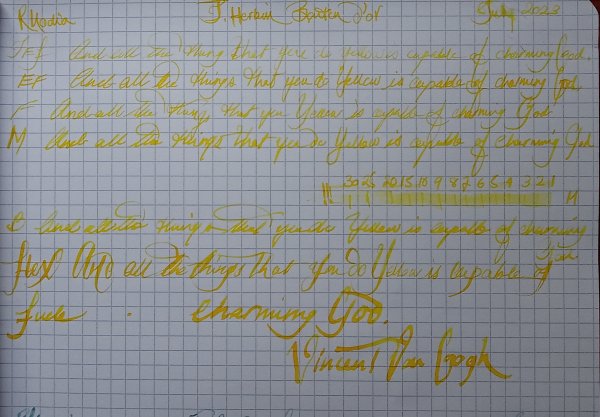 Rhodia J. Herbin Bouton D'or July 2023
EF And all the things that you do Yellow is capable of charming God.
EF And all the things that you do Yellow is capable of charming God.
F And all the things that you Yellow is capable of charming God
M And all the things that you do Yellow is capable of charming God
30 25 20 15 10 9 8 7 6 5 4 3 2 1 M
And all the things that you do Yellow is capable of charming
God
flex And all the things that you do Yellow is capable of
fude charming God.
Vincent Van Gogh